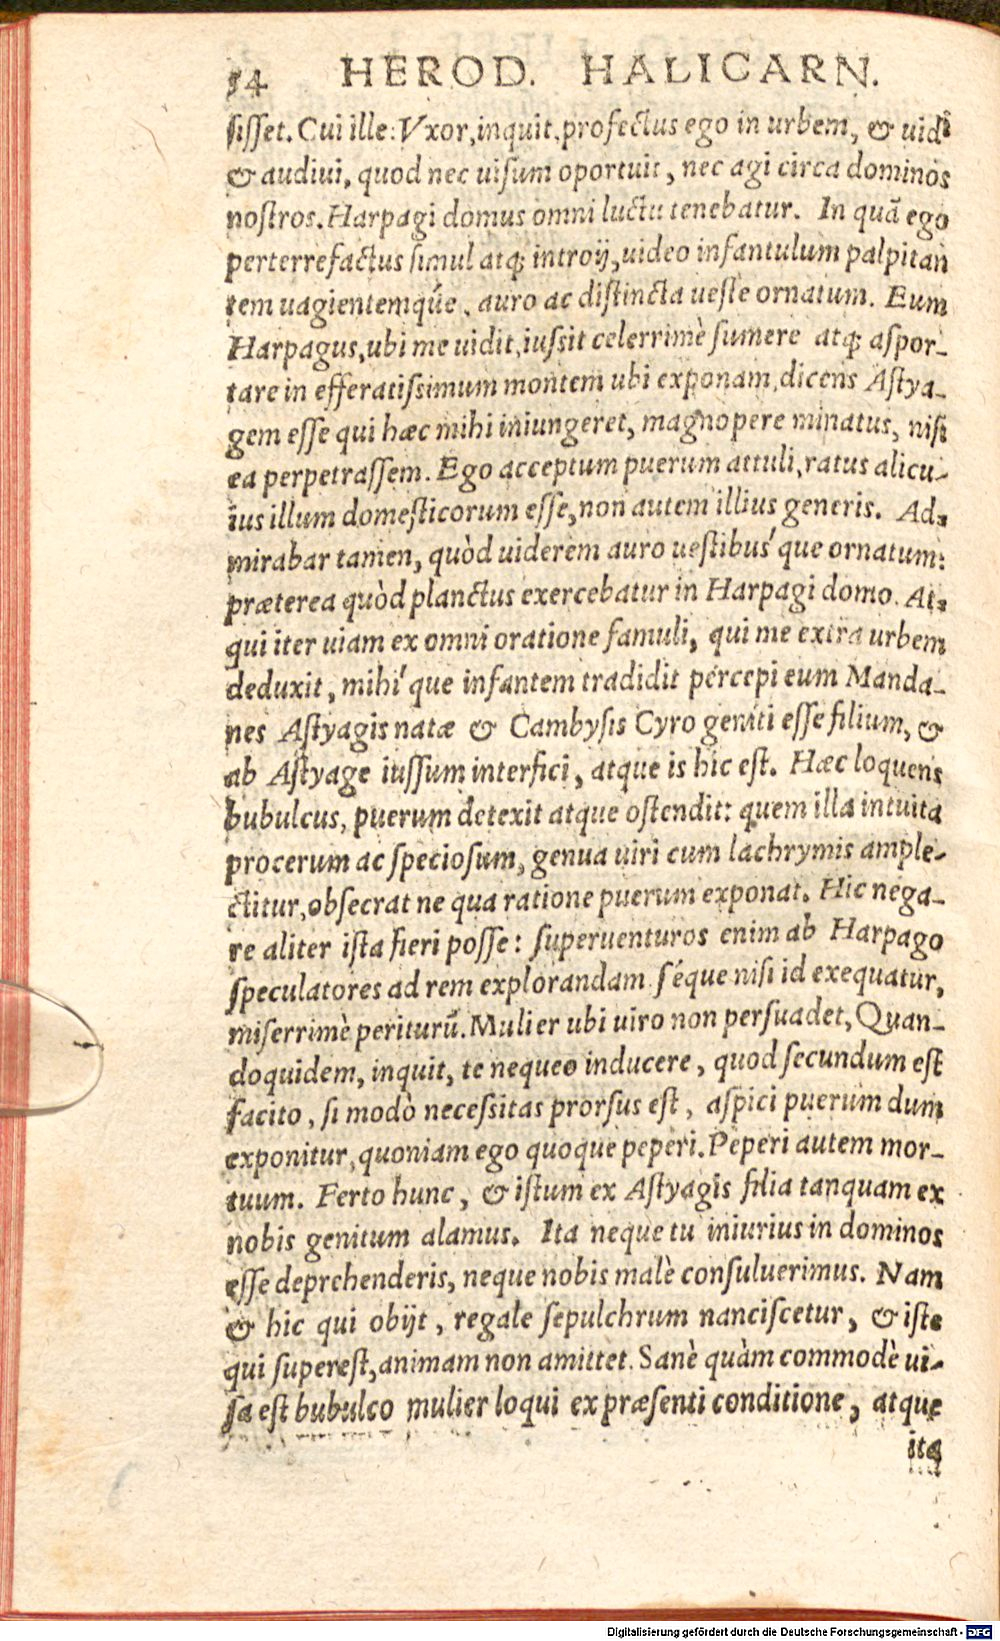 54 HEROD. HALICARN.
sisset. Cui ille: Vxor, inquit, profectus ego in urbem, & uidi
& audiui, quod nec uisum oportuit, nec agi circa dominos
nostros. Harpagi domus omni luctu tenebatur. In quā ego
perterrefactus simul atq; introij, uideo infantulum palpitan
tem uagientemq́ue, auro ac distincta ueste ornatum. Eum
Harpagus, ubi me uidit, iussit celerrimè sumere atq; aspor-
tare in efferatissimum montem ubi exponam, dicens Astya-
gem esse qui hæc mihi iniungeret, magnopere minatus, nisi
ea perpetrassem. Ego acceptum puerum attuli, ratus alicu-
ius illum domesticorum esse, non autem illius generis. Ad-
mirabar tamen, quòd uiderem auro uestibuśque ornatum:
præterea quòd planctus exercebatur in Harpagi domo. At-
qui iter uiam ex omni oratione famuli, qui me extra urbem
deduxit, mihíque infantem tradidit percepi eum Manda-
nes Astyagis natæ & Cambysis Cyro geniti esse filium, &
ab Astyage iussum interfici, atque is hic est. Hæc loquens
bubulcus, puerum detexit atque ostendit: quem illa intuita
procerum ac speciosum, genua uiri cum lachrymis ample-
ctitur, obsecrat ne qua ratione puerum exponat. Hic nega-
re aliter ista fieri posse: superuenturos enim ab Harpago
speculatores ad rem explorandam séque nisi id exequatur,
miserrimè periturū. Mulier ubi uiro non persuadet, Quan-
doquidem, inquit, te nequeo inducere, quod secundum est
facito, si modò necessitas prorsus est, aspici puerum dum
exponitur, quoniam ego quoque peperi. Peperi autem mor-
tuum. Ferto hunc, & istum ex Astyagis filia tanquam ex
nobis genitum alamus. Ita neque tu iniurius in dominos
esse deprehenderis, neque nobis malè consuluerimus. Nam
& hic qui obijt, regale sepulchrum nanciscetur, & iste
qui superest, animam non amittet. Sanè quàm commodè ui-
sa est bubulco mulier loqui ex præsenti conditione, atque
ita
Digitalisierung gefördert durch die Deutsche Forschungsgemeinschaft - DFG